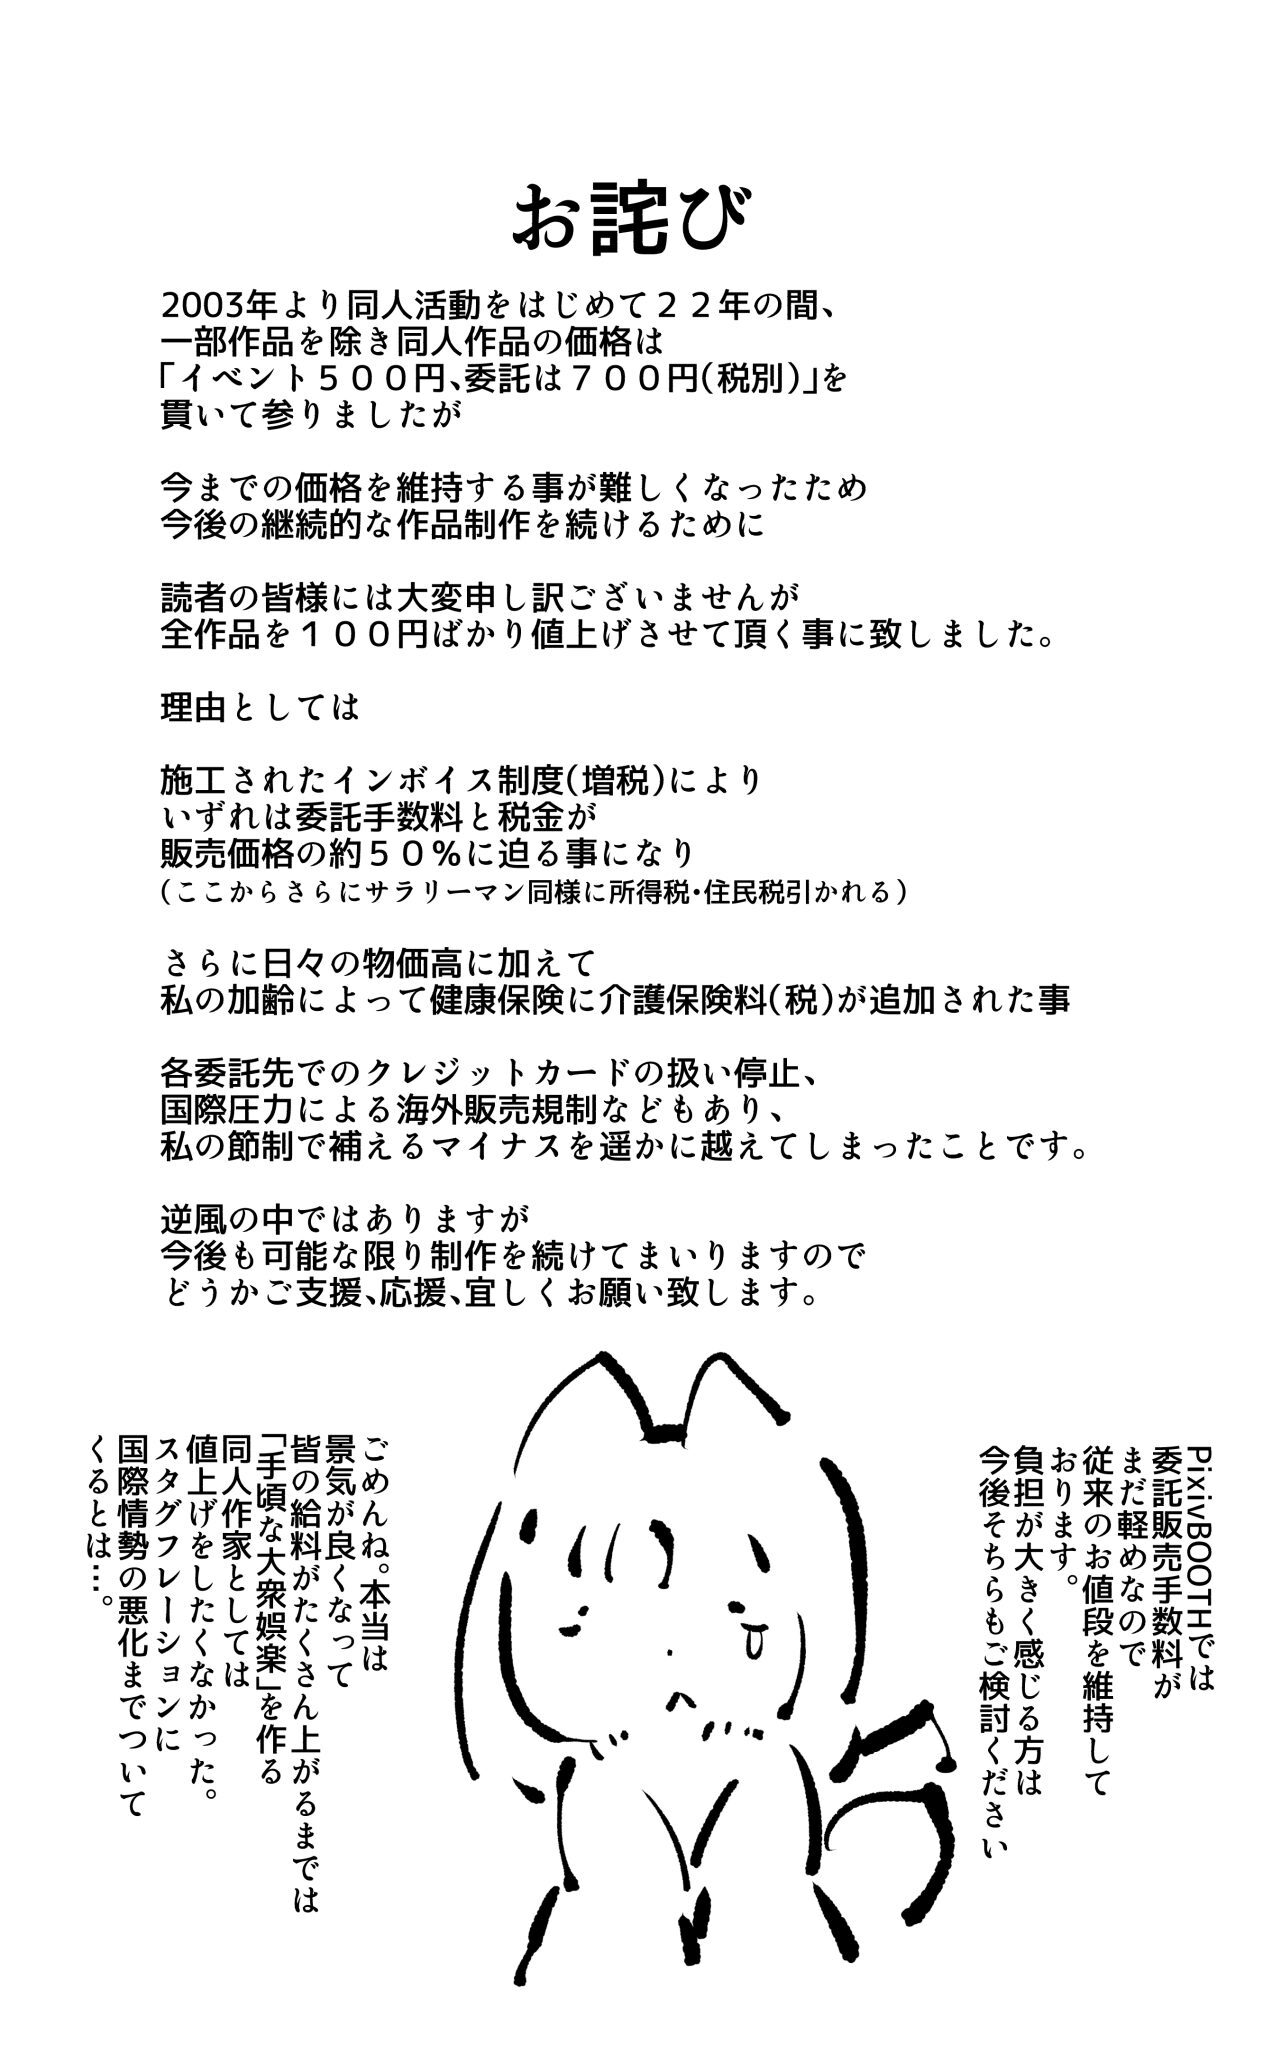 お詫び
2003年より同人活動をはじめて２２年の間、
一部作品を除き同人作品の価格は
「イベント５００円、委託は７００円(税別)」を
貫いて参りましたが
今までの価格を維持する事が難しくなったため
今後の継続的な作品制作を続けるために
読者の皆様には大変申し訳ございませんが
全作品を１００円ばかり値上げさせて頂く事に致しました。
理由としては
施工されたインボイス制度(増税)により
いずれは委託手数料と税金が
販売価格の約５０％に迫る事になり
(ここからさらにサラリーマン同様に所得税・住民税引かれる)
さらに日々の物価高に加えて
私の加齢によって健康保険に介護保険料(税)が追加された事
各委託先でのクレジットカードの扱い停止、
国際圧力による海外販売規制などもあり、
私の節制で補えるマイナスを遥かに越えてしまったことです。
逆風の中ではありますが
今後も可能な限り制作を続けてまいりますので
どうかご支援、応援、宜しくお願い致します。
PixivBOOTHでは
委託販売手数料が
まだ軽めなので
従来のお値段を維持して
おります。
負担が大きく感じる方は
今後そちらもご検討ください
ごめんね。本当は
景気が良くなって
皆の給料がたくさん上がるまでは
「手頃な大衆娯楽」を作る
同人作家としては
値上げをしたくなかった。
スタグフレーションに
国際情勢の悪化までついて
くるとは…。